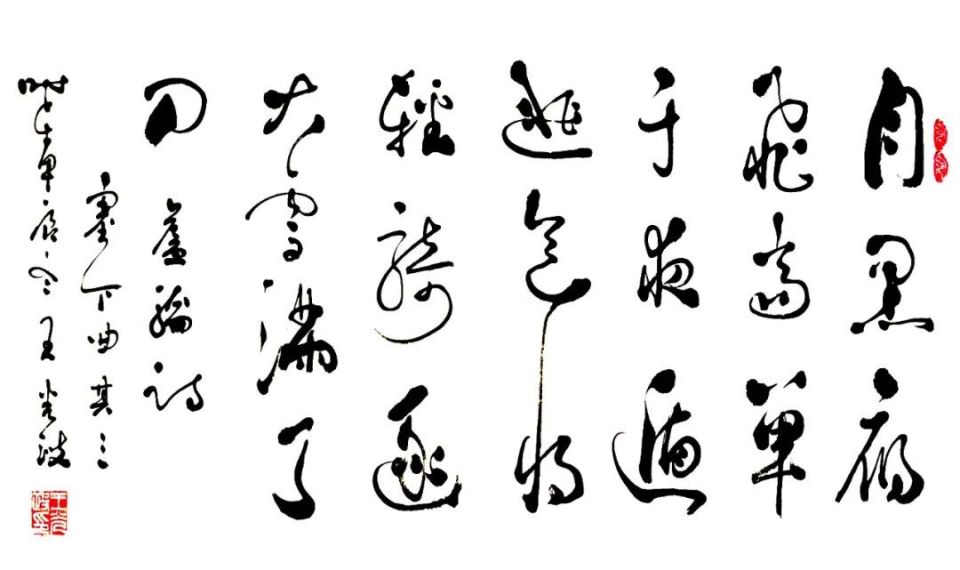 月黑雁
飛高單
于夜遁
逃欲將
輕騎逐
大雪滿弓
刀 盧綸詩
塞下曲其三
王光波